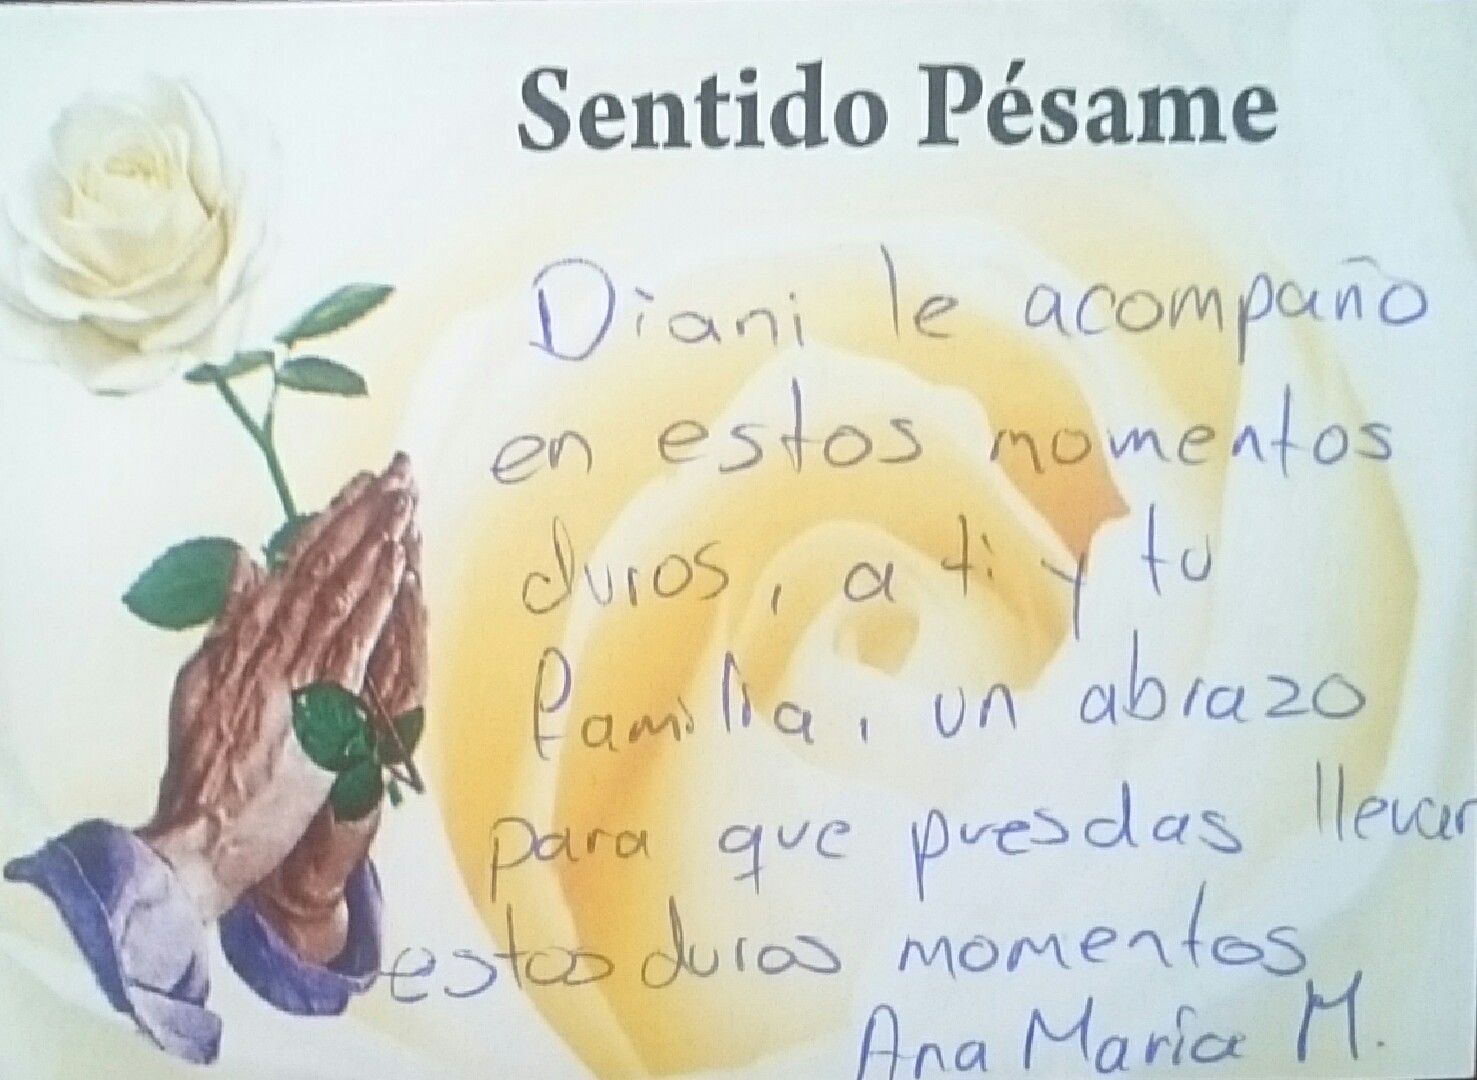 Sentido Pésame
Diani le acompaño
en estos momentos
duros, a ti y tu
familia, un abrazo
para que puesdas llevar
estos duros momentos
Ana María M.